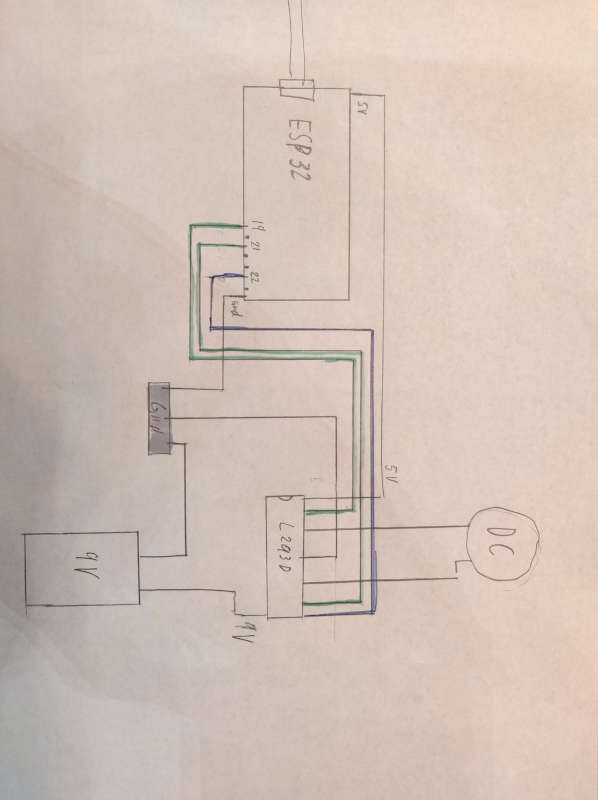 5V
ESP32
19
21
22
Gnd
Gnd
5V
L293D
DC
9V
9V